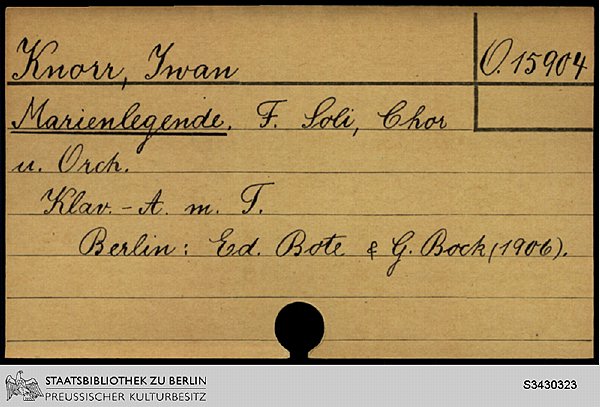 Knorr, Iwan
O. 15904
Marienlegende. F. Soli, Chor
u. Orch.
Klav.-A. m. T.
Berlin: Ed. Bote & G. Bock (1906).
STAATSBIBLIOTHEK ZU BERLIN
PREUSSISCHER KULTURBESITZ
S3430323